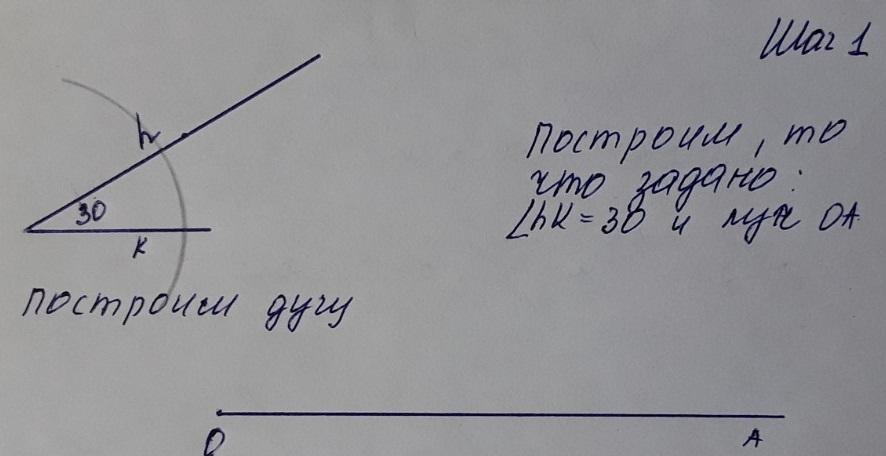 Шаг 1
Построим, то
что задано:
∠hk = 30 и луч OA
h
30
k
Построим дугу
O
A